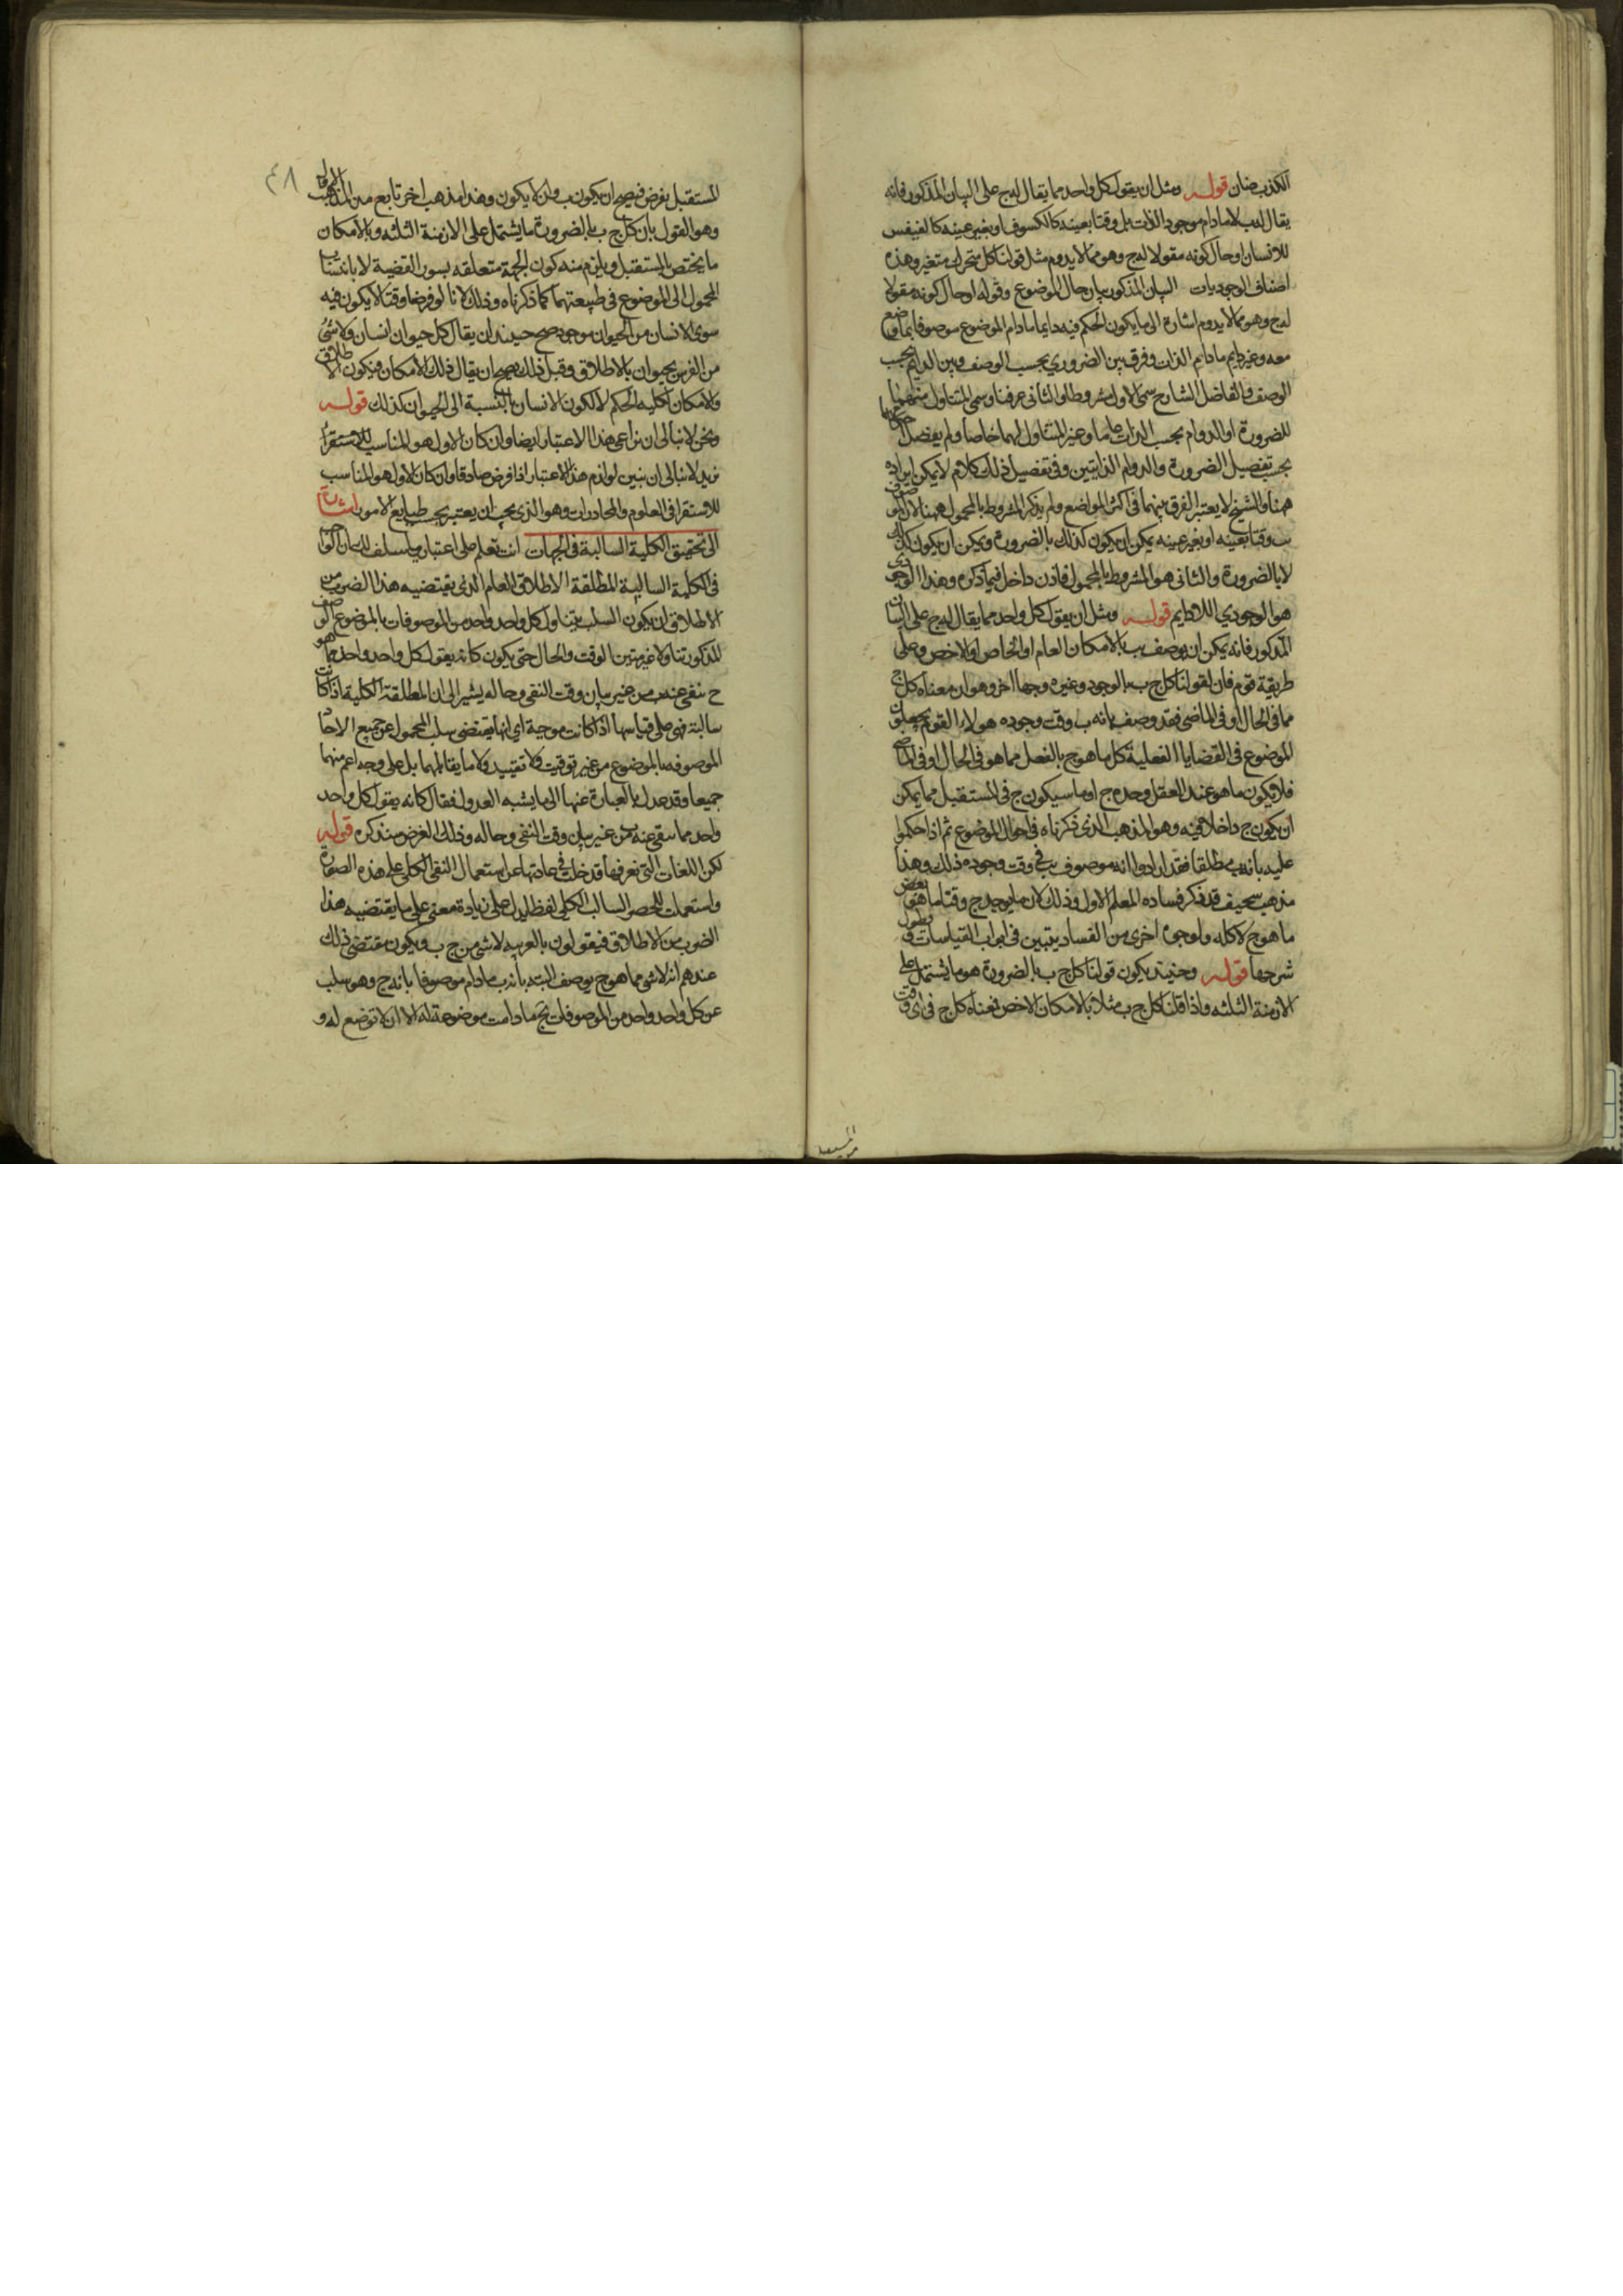 الكذب ضان قوله ومثل ان يقول كل واحد مما يقال له ج على البيان المذكور فانه
يقال له ب لا مادام موجود الذات بل وقتا بعينه كالكسوف او بغير عينه كالتنفس
للانسان او حال كونه مقولا له ج وهو مما لا يدوم مثل قولنا كل متحرك متغير وهذه
اصناف الوجوديات البيان المذكور بيان حال الموضوع وقوله او حال كونه مقولا
له ج وهو مما لا يدوم اشارة الى ما يكون الحكم فيه دايما مادام الموضوع موصوفا بما وضع
معه وغير دايم مادام الذات وفرق بين الضروري بحسب الوصف وبين الدايم بحسب
الوصف فالفاضل الشارح سمى الاول مشروطا والثاني عرفيا وسمى المتناول منهما
للضرورة او الدوام بحسب الذات عاما وغير المتناول لهما خاصا ولم يفصل
بحسب تفصيل الضرورة والدوام الذاتيين وفي تفصيل ذلك كلام لا يمكن ايراده
ههنا والشيخ لا يعتبر الفرق بينهما في اكثر المواضع ولم يذكر المشروط بالمحمول ههنا لان الموصوف
ب وقتا بعينه او بغير عينه يمكن ان يكون كذلك بالضرورة ويمكن ان يكون كذلك
لا بالضرورة والثاني هو المشروط بالمحمول فاذن داخل فيما ذكره وهذا الوجودي
هو الوجودي اللادايم قوله ومثل ان يقول كل واحد مما يقال له ج على البيان
المذكور فانه يمكن ان يوصف ب بالامكان العام او الخاص او الاخص وعلى
طريقة قوم فان لقولنا كل ج ب بالوجود وغيره وجها اخر وهو ان معناه كل ج
مما في الحال او في الماضي فقد وصف بانه ب وقت وجوده هولاء القوم يجعلون
الموضوع في القضايا الفعلية كل ما هو ج بالفعل مما هو في الحال او في الماضي
فلا يكون ما هو عند العقل وحده ج او ما سيكون ج في المستقبل مما يمكن
ان يكون ج داخلا فيه وهو المذهب الذي ذكرناه في احوال الموضوع ثم اذا حكموا
عليه بانه ب مطلقا فقد ارادوا انه موصوف ب في وقت وجوده ذلك وهذا
مذهب سخيف قد ذكر فساده المعلم الاول وذلك لان ما يوجد ج وقتا ما هو بعض
ما هو ج لا كله ولوجوه اخرى من الفساد يتبين في ابواب القياسات ويطول
شرحها قوله وحينئذ يكون قولنا كل ج ب بالضرورة هو ما يشتمل على
الازمنة الثلثه واذا قلنا كل ج ب مثلا بالامكان الاخص فمعناه كل ج في اي وقت
٤٨
المستقبل يفرض فيصح ان يكون ب وان لا يكون وهذا مذهب اخر تابع من المذهب الاول
وهو القول بان كل ج ب بالضرورة ما يشتمل على الازمنة الثلثه وبالامكان
ما يختص بالمستقبل ويلزم منه كون الجهة متعلقه بسور القضية لا بانتساب
المحمول الى الموضوع في طبيعتهما كما ذكرناه وذلك لانا لو فرضنا وقتا لا يكون فيه
سوى الانسان من الحيوان موجود صح حينئذ ان يقال كل حيوان انسان ولا شئ
من الفرس بحيوان بالاطلاق وقبل ذلك يصح ان يقال ذلك بالامكان فيكون الاطلاق
والامكان لكلية الحكم لا لكون الانسان بالنسبة الى الحيوان كذلك قوله
ونحن لا نبالي ان نراعي هذا الاعتبار ايضا وان كان الاول هو المناسب للاستقراء
نريد لا نبالي ان نبين لوازم هذا الاعتبار اذا فرض صادقا وان كان الاول هو المناسب
للاستقرا في العلوم والمحاورات وهو الذي يجب ان يعتبر بحسب طبايع الامور اشارة
الى تحقيق الكلية السالبة في الجهات انت تعلم على اعتبار ما سلف لك ان الواجب
في الكلية السالبة المطلقة الاطلاق العام الذي يقتضيه هذا الضرب من
الاطلاق ان يكون السلب يتناول كل واحد واحد من الموصوفات بالموضوع الوصف
المذكور تناولا غير مبين الوقت والحال حتى يكون كانه يقول كل واحد واحد مما هو
ج ينفى عنه ب من غير بيان وقت النفى وحاله يشير الى ان المطلقة الكلية اذا كانت
سالبة فهى على قياسها اذا كانت موجبة اي انها يقتضى سلب المحمول عن جميع الاحاد
الموصوفه بالموضوع من غير توقيت ولا تقييد ولا ما يقابلهما بل على وجه اعم منهما
جميعا وقد عدل بالعبارة عنها الى ما يشبه العدول فقال كانه يقول كل واحد
واحد مما ينفى عنه ب من غير بيان وقت النفى وحاله وذلك الغرض سنذكره قوله
لكن اللغات التي نعرفها قد خلت في عادتها عن استعمال النفى الكلى على هذه الصورة
واستعملت للحصر السالب الكلى لفظا يدل على زيادة معنى على ما يقتضيه هذا
الضرب من الاطلاق فيقولون بالعربيه لا شئ من ج ب ويكون مقتضى ذلك
عندهم انه لا شئ مما هو ج يوصف البته بانه ب مادام موصوفا بانه ج وهو سلب
عن كل واحد واحد من الموصوفات بج مادامت موضوعة له الا ان لا توضع له و